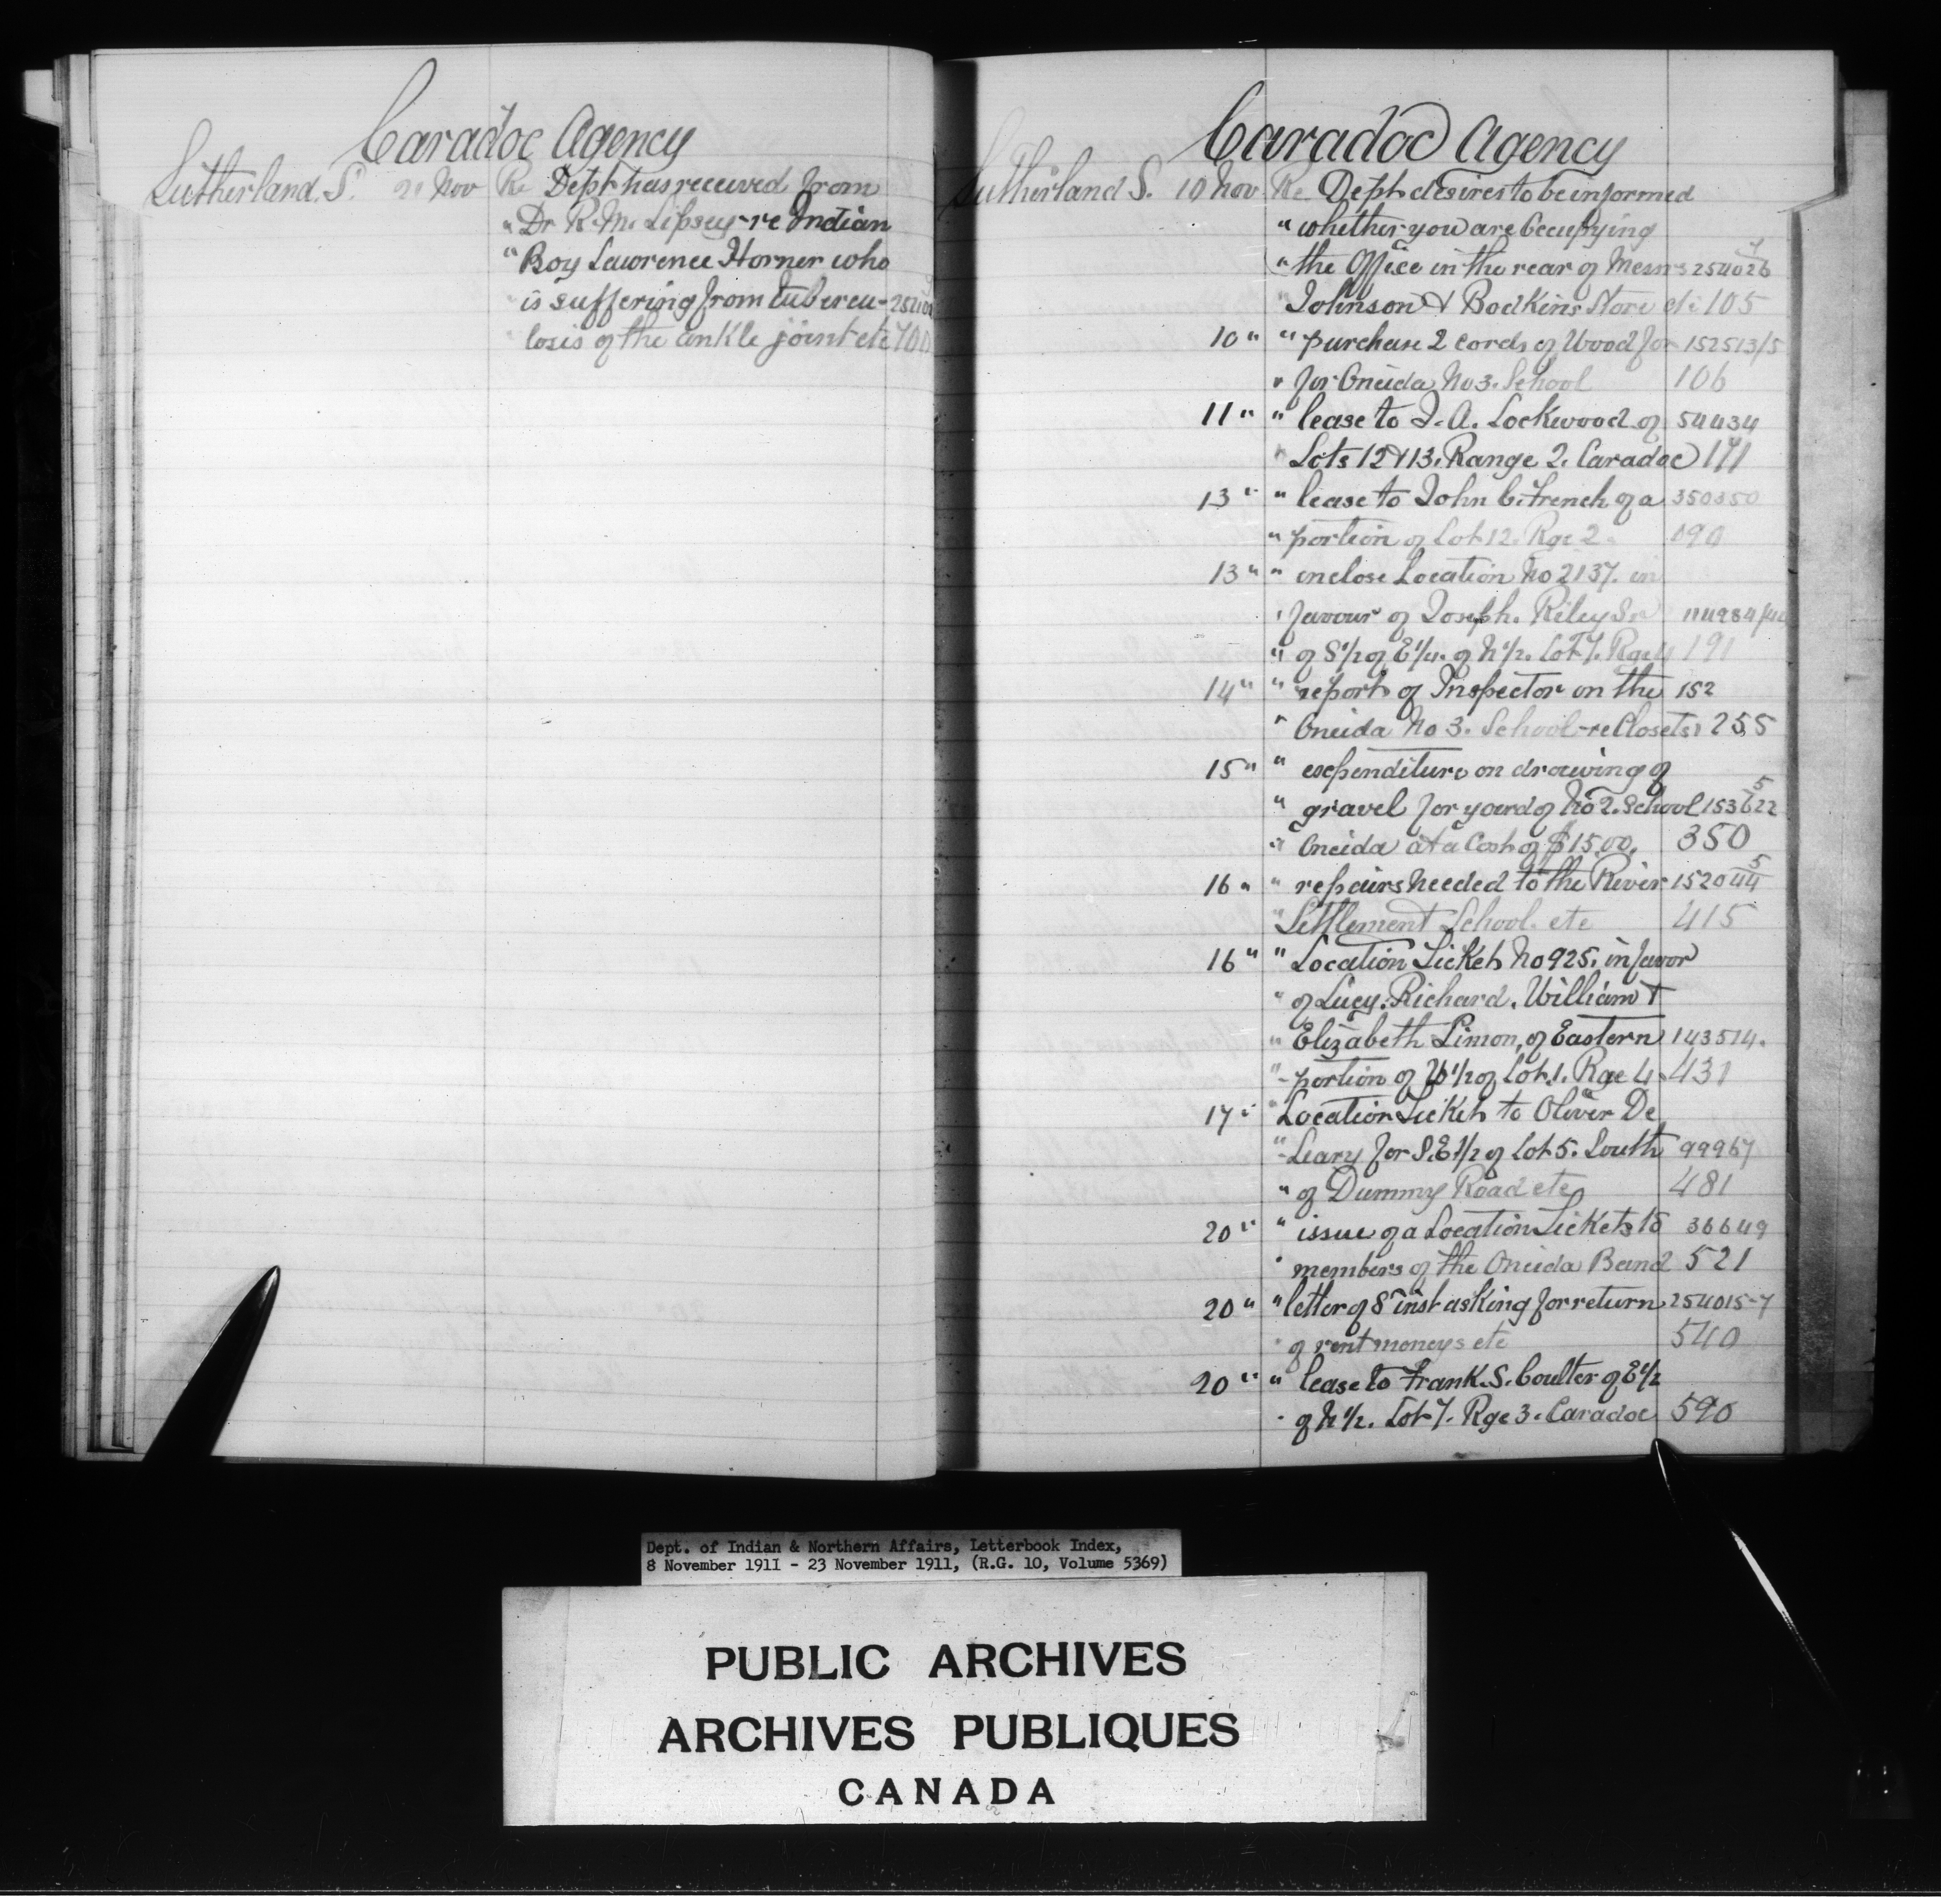 Caradoc Agency
Sutherland. S. Nov Re Dept has received from
" Dr R. M. Lipsey - re Indian
" Boy Lawrence Horner who
" is suffering from tubercu-
" losis of the ankle joint etc 700
Caradoc Agency
Sutherland S. 10 Nov Re Dept desires to be informed
" whether you are Occupying
" the Office in the rear of Messrs 254026 7
" Johnson & Bodkins Store etc 105
10 " " purchase 2 cords of Wood for 152513/5
" for Oneida No 3. School 106
11 " " lease to J. A. Lockwood of 54434
" Lots 12 & 13. Range 2. Caradoc 171
13 " " lease to John C. French of a 350350
" portion of Lot 12. Rge 2. 090
13 " " enclose Location No 2137. in
" favour of Joseph. Riley Sr
" of S 1/2 of E 1/4. of N 1/2. Lot 7. Rge 4 191
14 " " report of Inspector on the 152
" Oneida No 3. School - re Closets 255
15 " " expenditure on drawing of
" gravel for yard of No 2. School 153622 5
" Oneida at a Cost of $15.00. 350
16 " " repairs needed to the River 152044 5
" Settlement School. etc 415
16 " " Location Ticket No 925. in favor
" of Lucy. Richard. William &
" Elizabeth Simon, of Eastern 143514.
" portion of W 1/2 of Lot. 1. Rge 4. 431
17 " " Location Ticket to Oliver De
" Leary for S.E 1/2 of Lot 5. South 99967
" of Dummy Road etc 481
20 " " issue of a Location Tickets to 36649
" members of the Oneida Band 521
20 " " letter of 8 inst asking for return 254015-7
" of rent moneys etc 540
20 " " lease to Frank. S. Coulter of E 1/2
" of N 1/2. Lot 7. Rge 3. Caradoc 590
Dept. of Indian & Northern Affairs, Letterbook Index,
8 November 1911 - 23 November 1911, (R.G. 10, Volume 5369)
PUBLIC ARCHIVES
ARCHIVES PUBLIQUES
CANADA